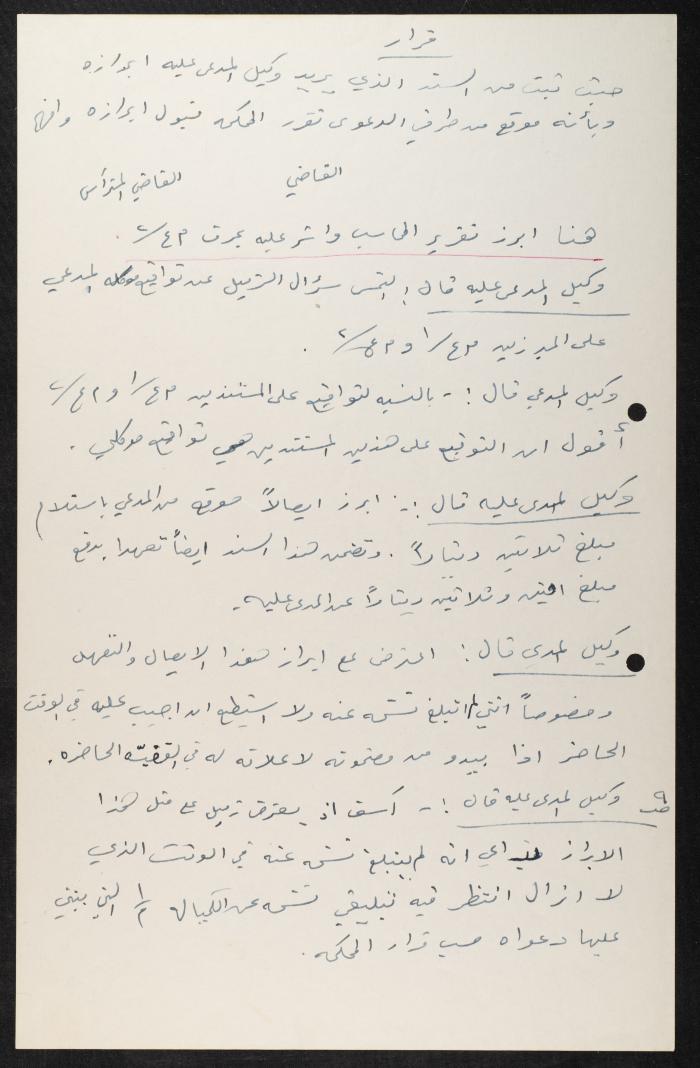 قرار
حيث ثبت من السند الذي يريد وكيل المدعى عليه ابرازه
وبأنه موقع من طرفي الدعوى تقرر المحكمة قبول ابرازه وافهم
القاضي القاضي المترأس
هنا ابرز تقرير المحاسب واشر عليه بحرف م ع/٢.
وكيل المدعى عليه قال : التمس سؤال الزميل عن تواقيع موكله المدعي
على المبرزين م ع/١ و م ع/٢ .
وكيل المدعي قال :- بالنسبه لتواقيع على المستندين م ع/١ و م ع/٢
أقول ان التوقيع على هذين المستندين هي تواقيع موكلي .
وكيل المدعى عليه قال :- ابرز ايصالاً موقع من المدعي باستلام
مبلغ ثلاثين ديناراً . وتضمن هذا السند ايضاً تعهدا بدفع
مبلغ اثنين وثلاثين ديناراً عن المدعى عليه .
وكيل المدعي قال : اعترض على ابراز هذا الايصال والتعهد
وخصوصاً انني لم اتبلغ نسخه عنه ولا استطيع ان اجيب عليه في الوقت
الحاضر اذا يبدو من مضمونه لا علاقه له في القضيه الحاضره .
وكيل المدعى عليه قال :- آسف اذ يعترض زميل على مثل هذا
الابراز اي انه لم يتبلغ نسخه عنه في الوقت الذي
لا ازال انتظر فيه تبليغي نسخه عن الكمبيالة م/١ التي يبني
عليها دعواه حسب قرار المحكمه .